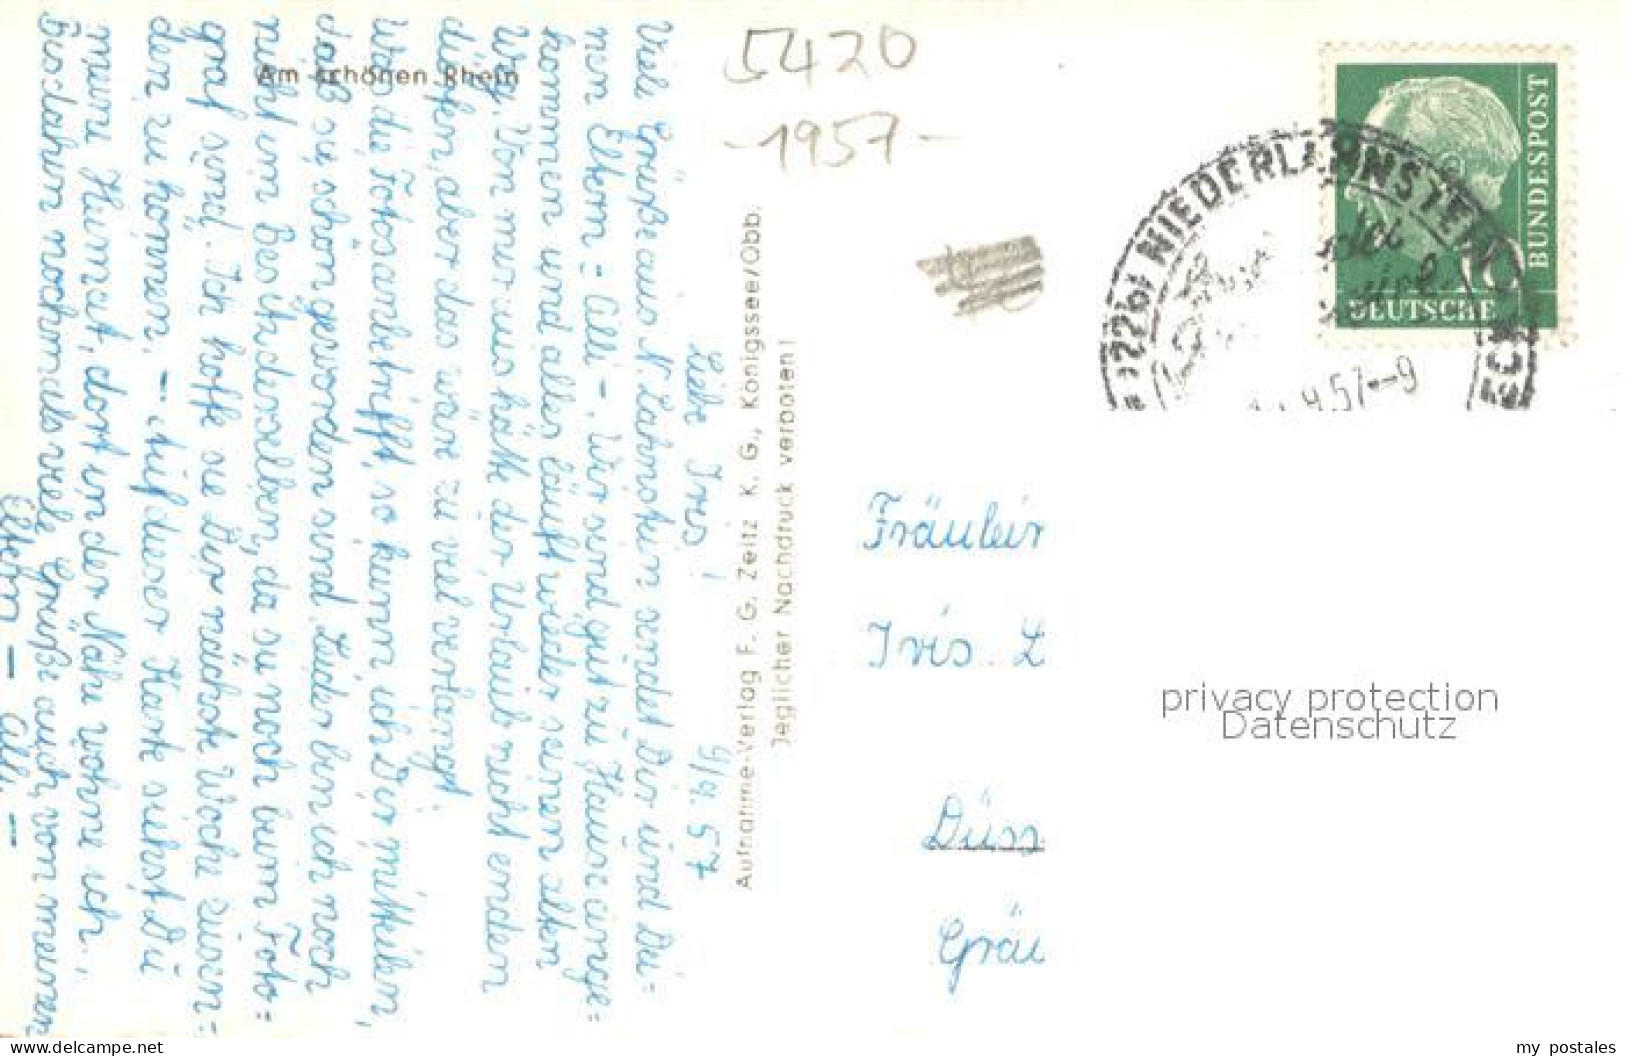 5420
-1957-
Am schönen Rhein
Liebe Iris! 9/9.57
Viele Grüße aus N. Lahnstein sendet Dir und Dei=
nen Eltern = Alli -, Wir sind gut zu Hause ange=
kommen und alles läuft wieder seinen alten
Weg. Von mir aus hätte der Urlaub nicht enden
dürfen, aber das wäre zu viel verlangt.
Was die Fotos anbetrifft, so kann ich Dir mitteilen,
daß sie schön geworden sind. Leider bin ich noch
nicht im Besitz derselben, da sie noch beim Foto=
graf sind. Ich hoffe sie Dir nächste Woche zusen=
den zu können. - Auf dieser Karte siehst Du
meine Heimat, dort in der Nähe wohne ich.,
Bis dahin nochmals viele Grüße auch von meinen
Eltern - Alli. -
Aufnahme-Verlag F. G. Zeitz K. G., Königssee/Obb.
Jeglicher Nachdruck verboten!
(22b) NIEDERLAHNSTEIN
9.57--9
DEUTSCHE
BUNDESPOST
Fräulein
Iris. L
Düss
Gräu
privacy protection
Datenschutz
https://www.delcampe.net
my_postales